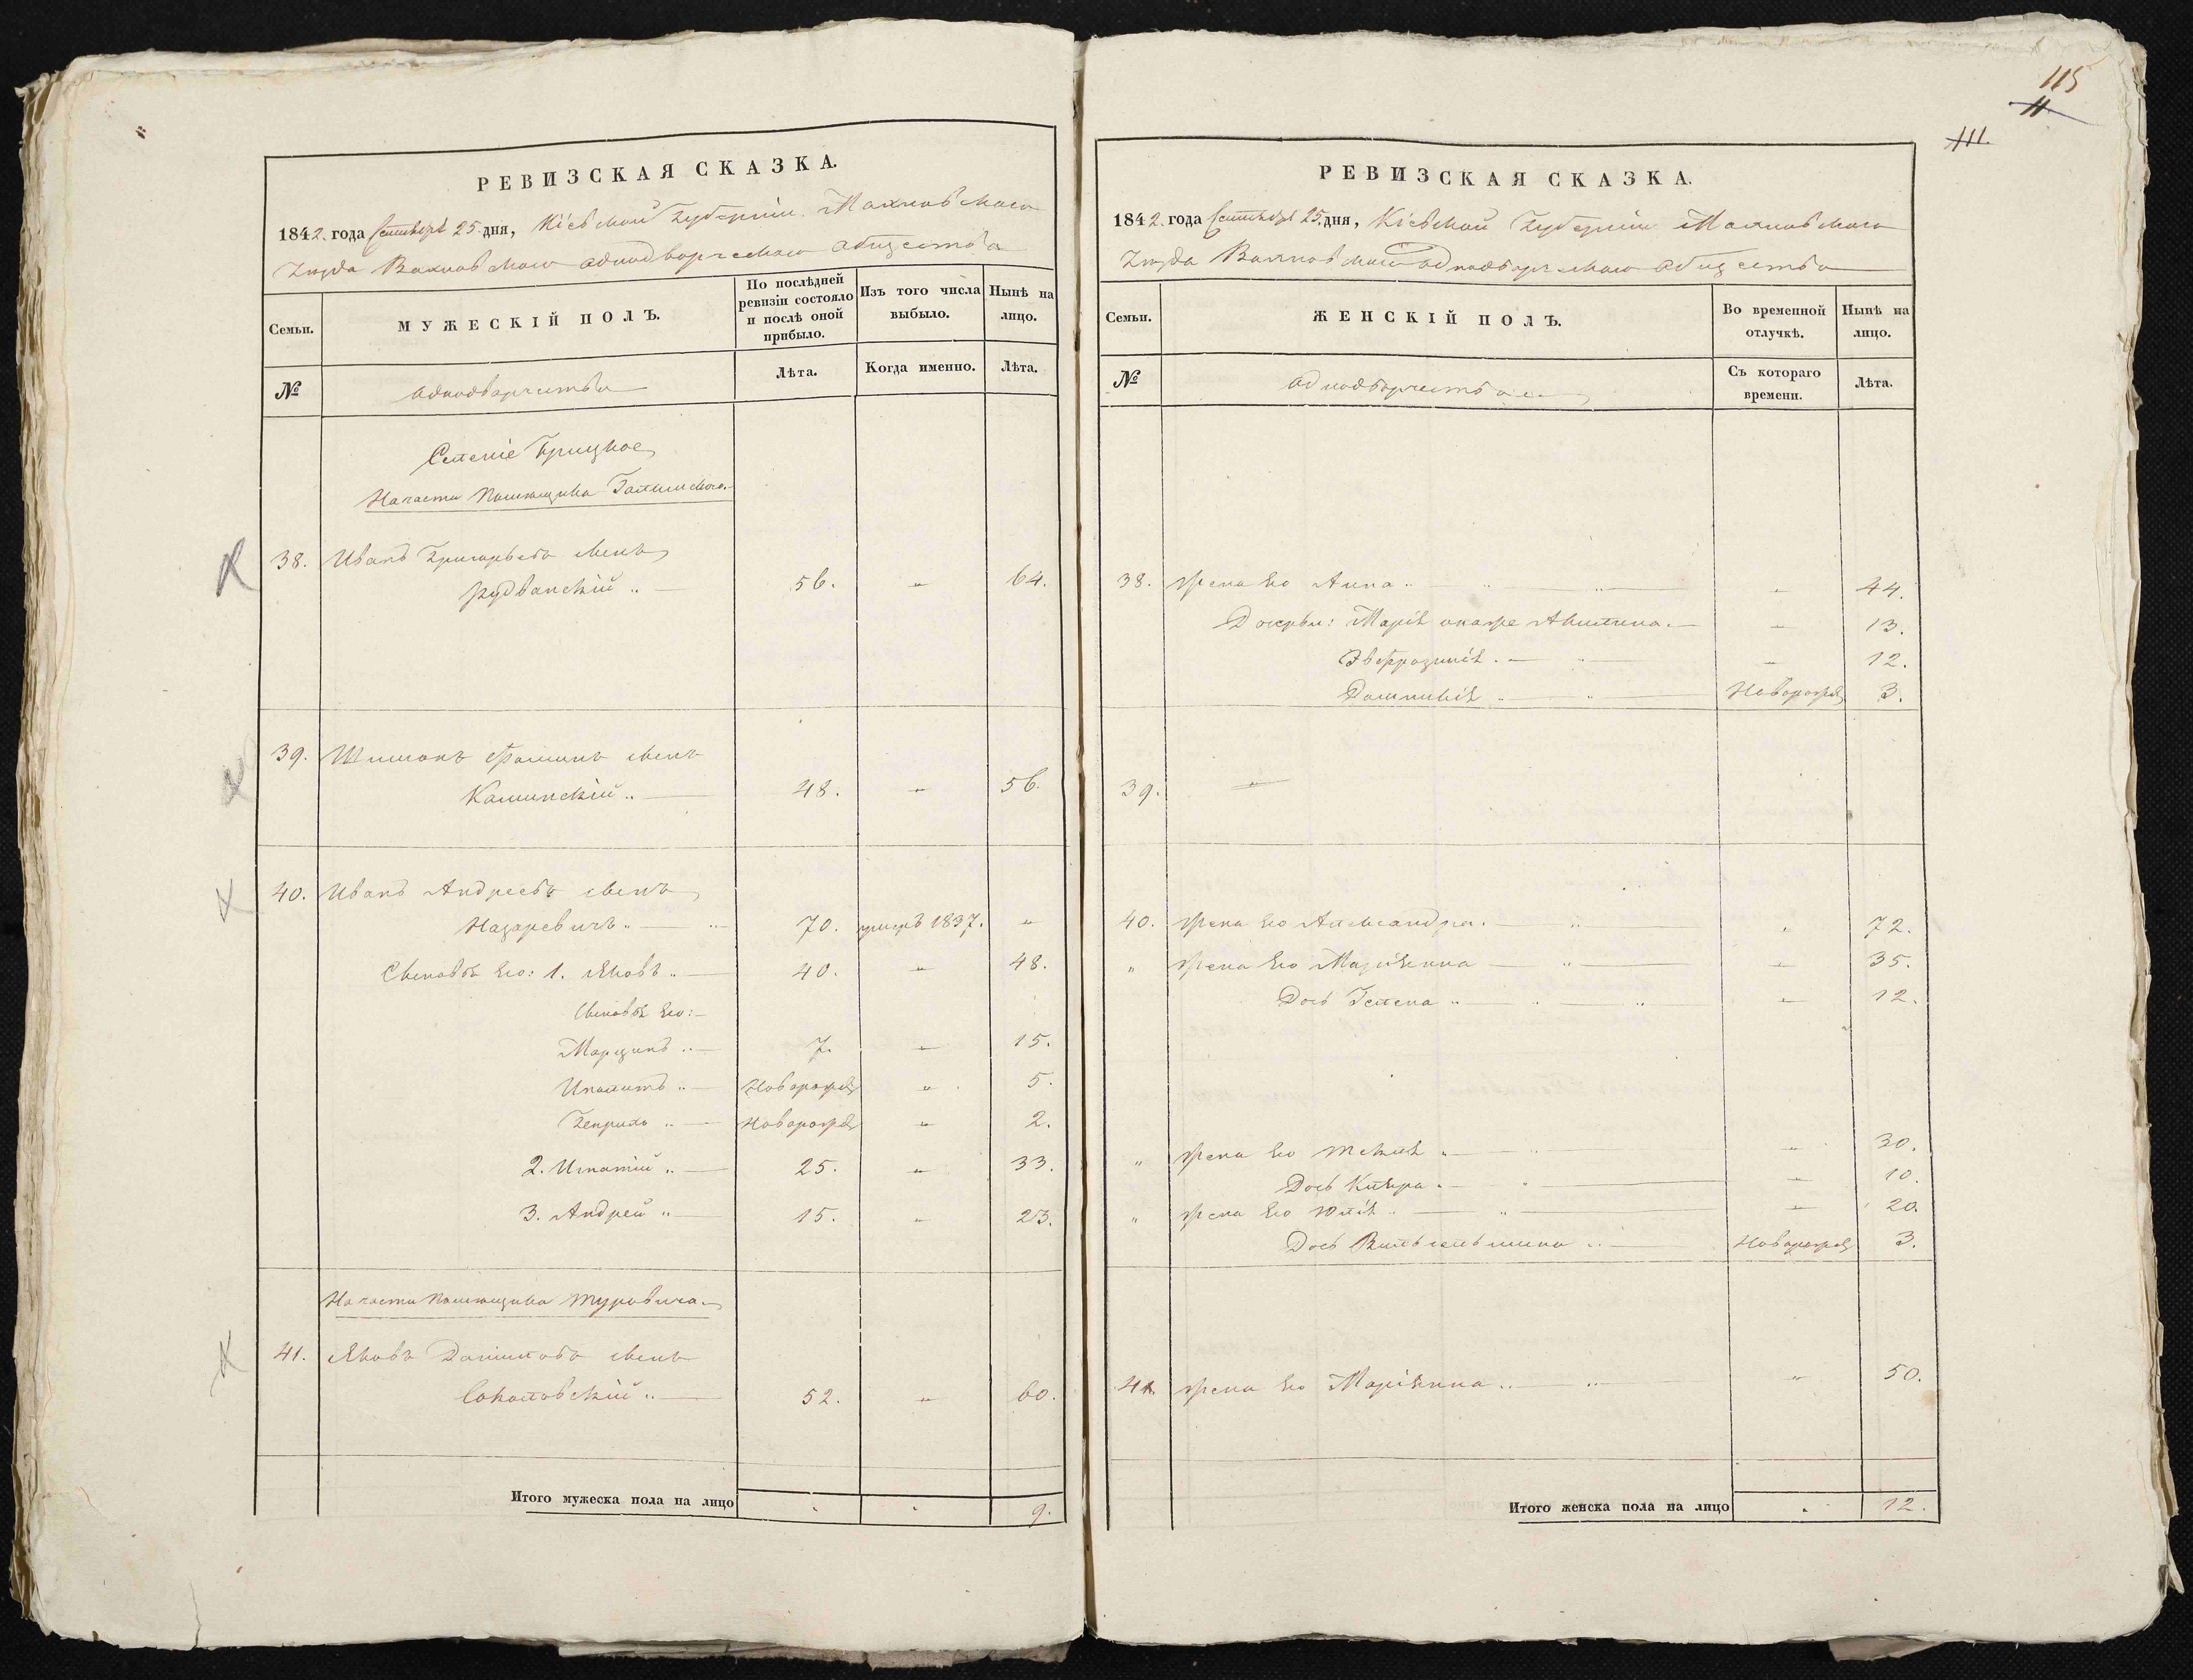 115
11
111.
РЕВИЗСКАЯ СКАЗКА.
1842. года Сентября 25 дня, Кіевской Губерніи Махновскаго
Уезда Вахновскаго однодворческаго общества
Семьи.
МУЖЕСКІЙ ПОЛЪ.
По послѣдней ревизіи состояло и послѣ оной прибыло.
Изъ того числа выбыло.
Нынѣ на лицо.
№
однодворчества
Лѣта.
Когда именно.
Лѣта.
Селеніе
На части Помещика
38. Иванъ Григорьевъ сынъ
Рудванскій „ 56. „ 64.
39. Шимонъ Фоминъ сынъ
Каминскій „ 48. „ 56.
40. Иванъ Андреевъ сынъ
Назаревичъ „ 70. умеръ 1837. „
Сыновья Его: 1. Яковъ „ 40. „ 48.
Сыновья Его:
Марцинъ „ 7. „ 15.
Иполитъ „ Новорожд „ 5.
Генрихъ „ Новорожд „ 2.
2. Игнатій „ 25. „ 33.
3. Андрей „ 15. „ 23.
На части Помещика Туровича
41. Яковъ Даниловъ сынъ
Соколовскій „ 52. „ 60.
Итого мужеска пола на лицо . . 9.
РЕВИЗСКАЯ СКАЗКА.
1842. года Сентября 25. дня, Кіевской Губерніи Махновскаго
Уезда Вахновскаго однодворческаго общества
Семьи.
ЖЕНСКІЙ ПОЛЪ.
Во временной отлучкѣ.
Нынѣ на лицо.
№
однодворчества
Съ котораго времени.
Лѣта.
38. Жена Его Анна „ „ 44.
Дочери: Марія онаже Акилина. „ 13.
Эвфрозинія. „ 12.
Доминикія „ Новорожд 3.
39. „
40. Жена Его Александра. „ 72.
„ Жена Его Маріянна „ 35.
Дочь Гелена „ „ 12.
„ Жена Его Текля „ „ 30.
Дочь Кляра „ „ 10.
„ Жена Его Юлія „ „ 20.
Дочь Вильгельмина „ Новорожд 3.
41. Жена Его Маріянна „ „ 50.
Итого женска пола на лицо . 12.